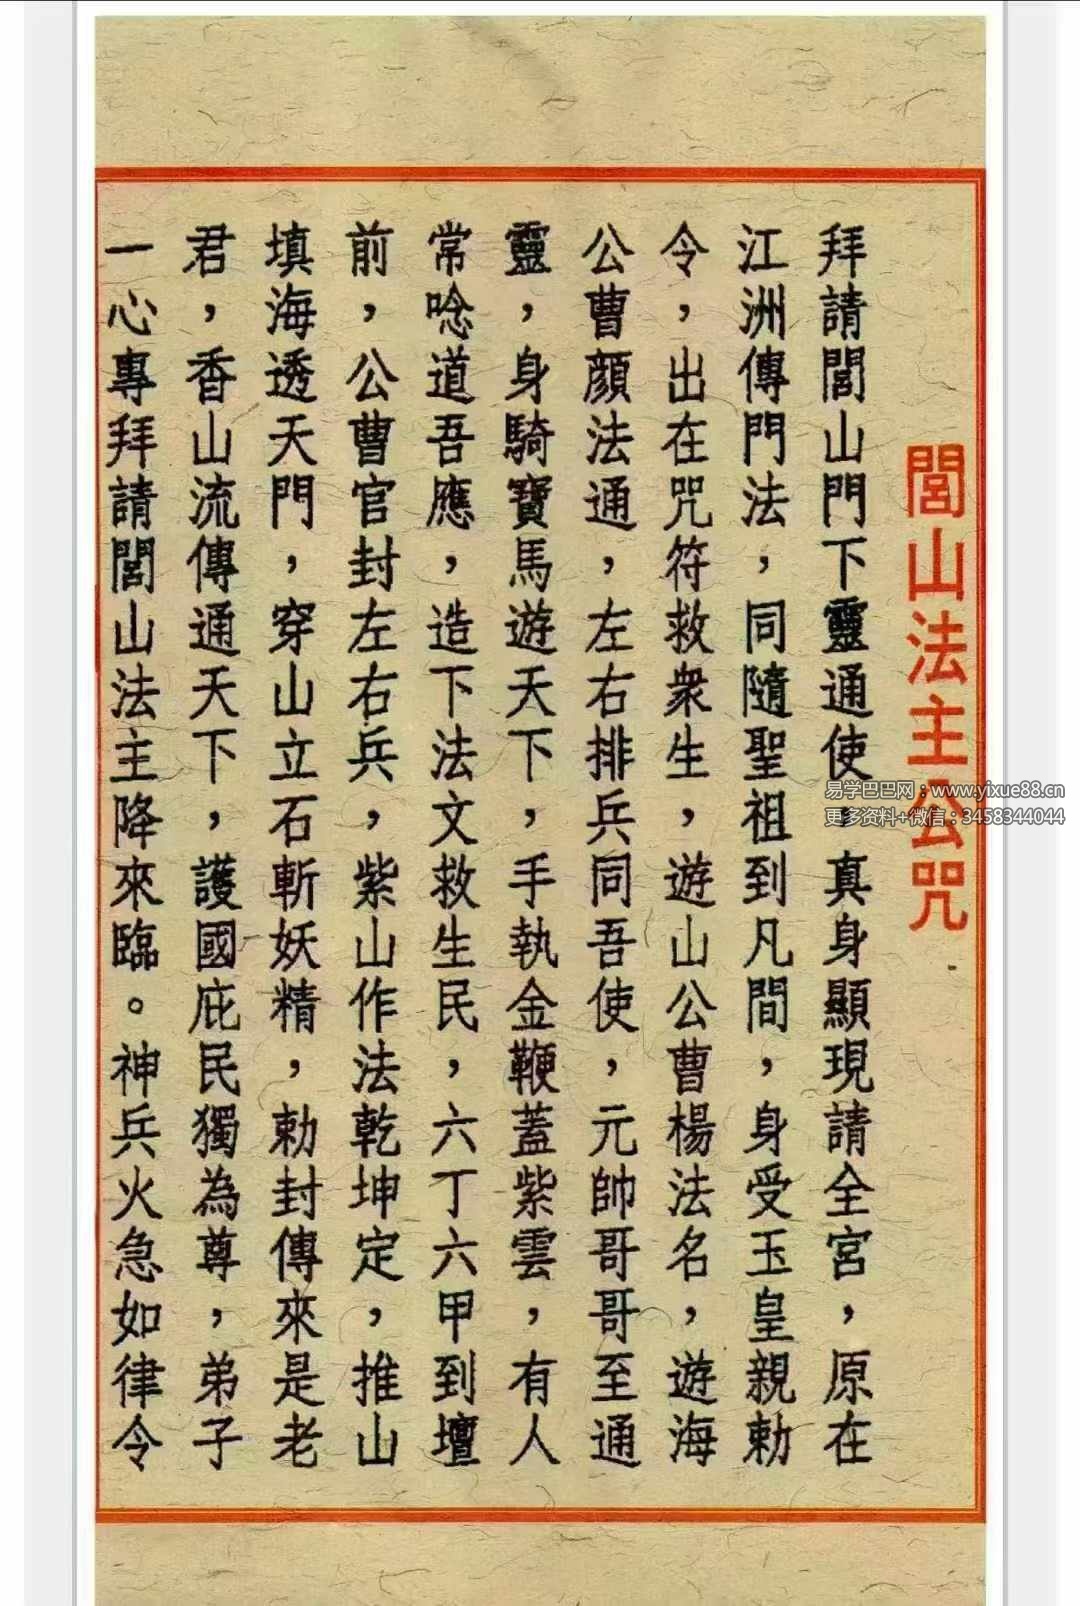 閭山法主公咒
拜請閭山門下靈通使，真身顯現請全宮，原在
江洲傳門法，同隨聖祖到凡間，身受玉皇親勅
令，出在咒符救衆生，遊山公曹楊法名，遊海
公曹顏法通，左右排兵同吾使，元帥哥哥至通
靈，身騎寶馬遊天下，手執金鞭蓋紫雲，有人
常唸道吾應，造下法文救生民，六丁六甲到壇
前，公曹官封左右兵，紫山作法乾坤定，推山
填海透天門，穿山立石斬妖精，勅封傳來是老
君，香山流傳通天下，護國庇民獨為尊，弟子
一心專拜請閭山法主降來臨。神兵火急如律令
易学巴巴网：www.yixue88.cn
更多资料+微信：3458344044